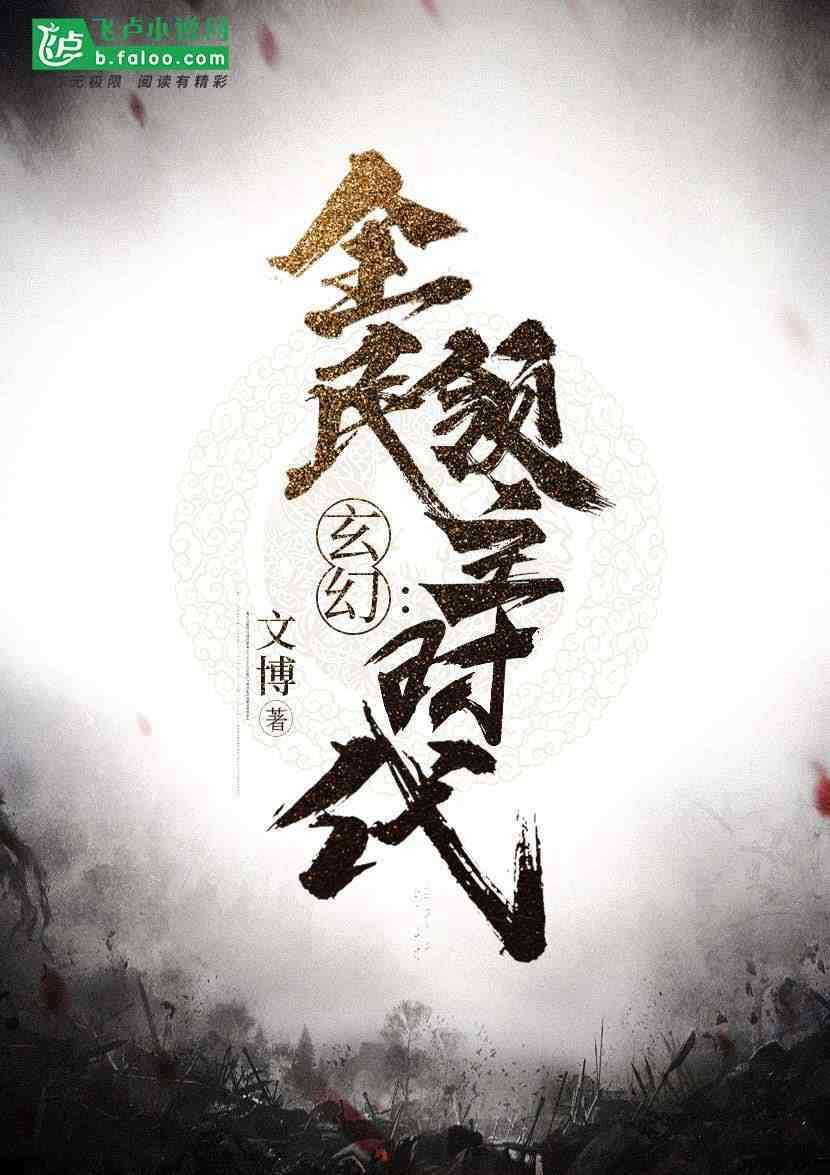 飞卢小说网
b.faloo.com
无极限 阅读有精彩
玄幻：
全民领主时代
文博 著